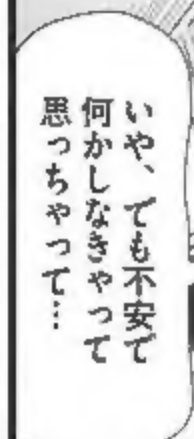 いや、でも不安で
何かしなきゃって
思っちゃって…